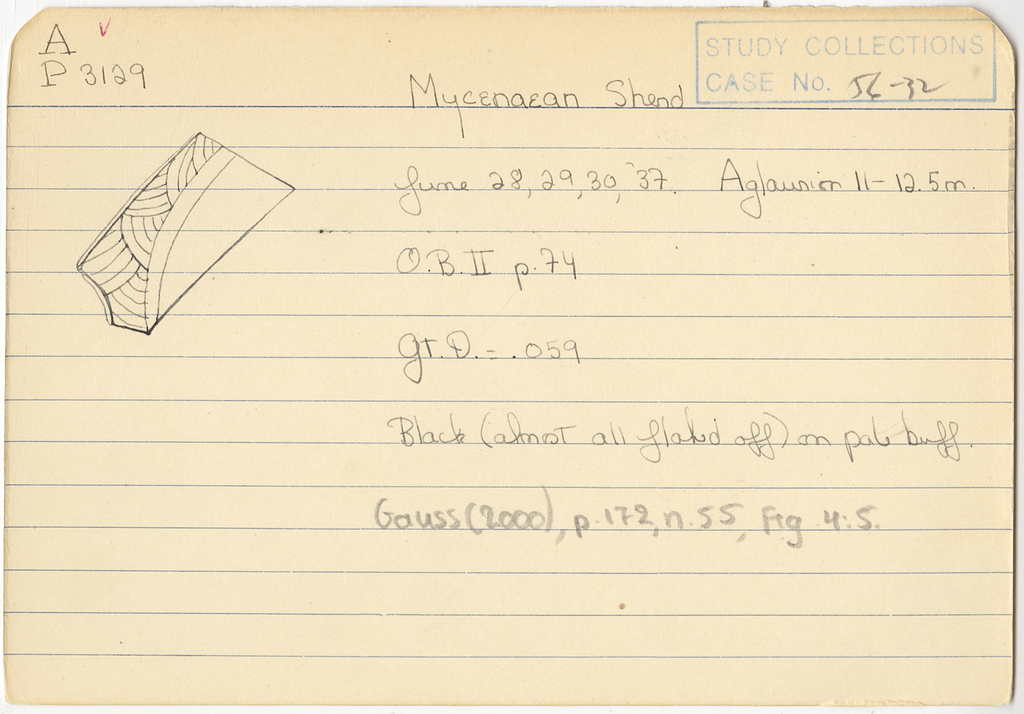 A
P 3129
STUDY COLLECTIONS
CASE No. 56-32
Mycenaean Sherd
June 28, 29, 30, '37. Aglaurion 11-12.5m.
O.B. II p. 74
Gt. D. = .059
Black (almost all flaked off) on pale buff.
Gauss (2000), p. 172, n. 55, Fig. 4:5.